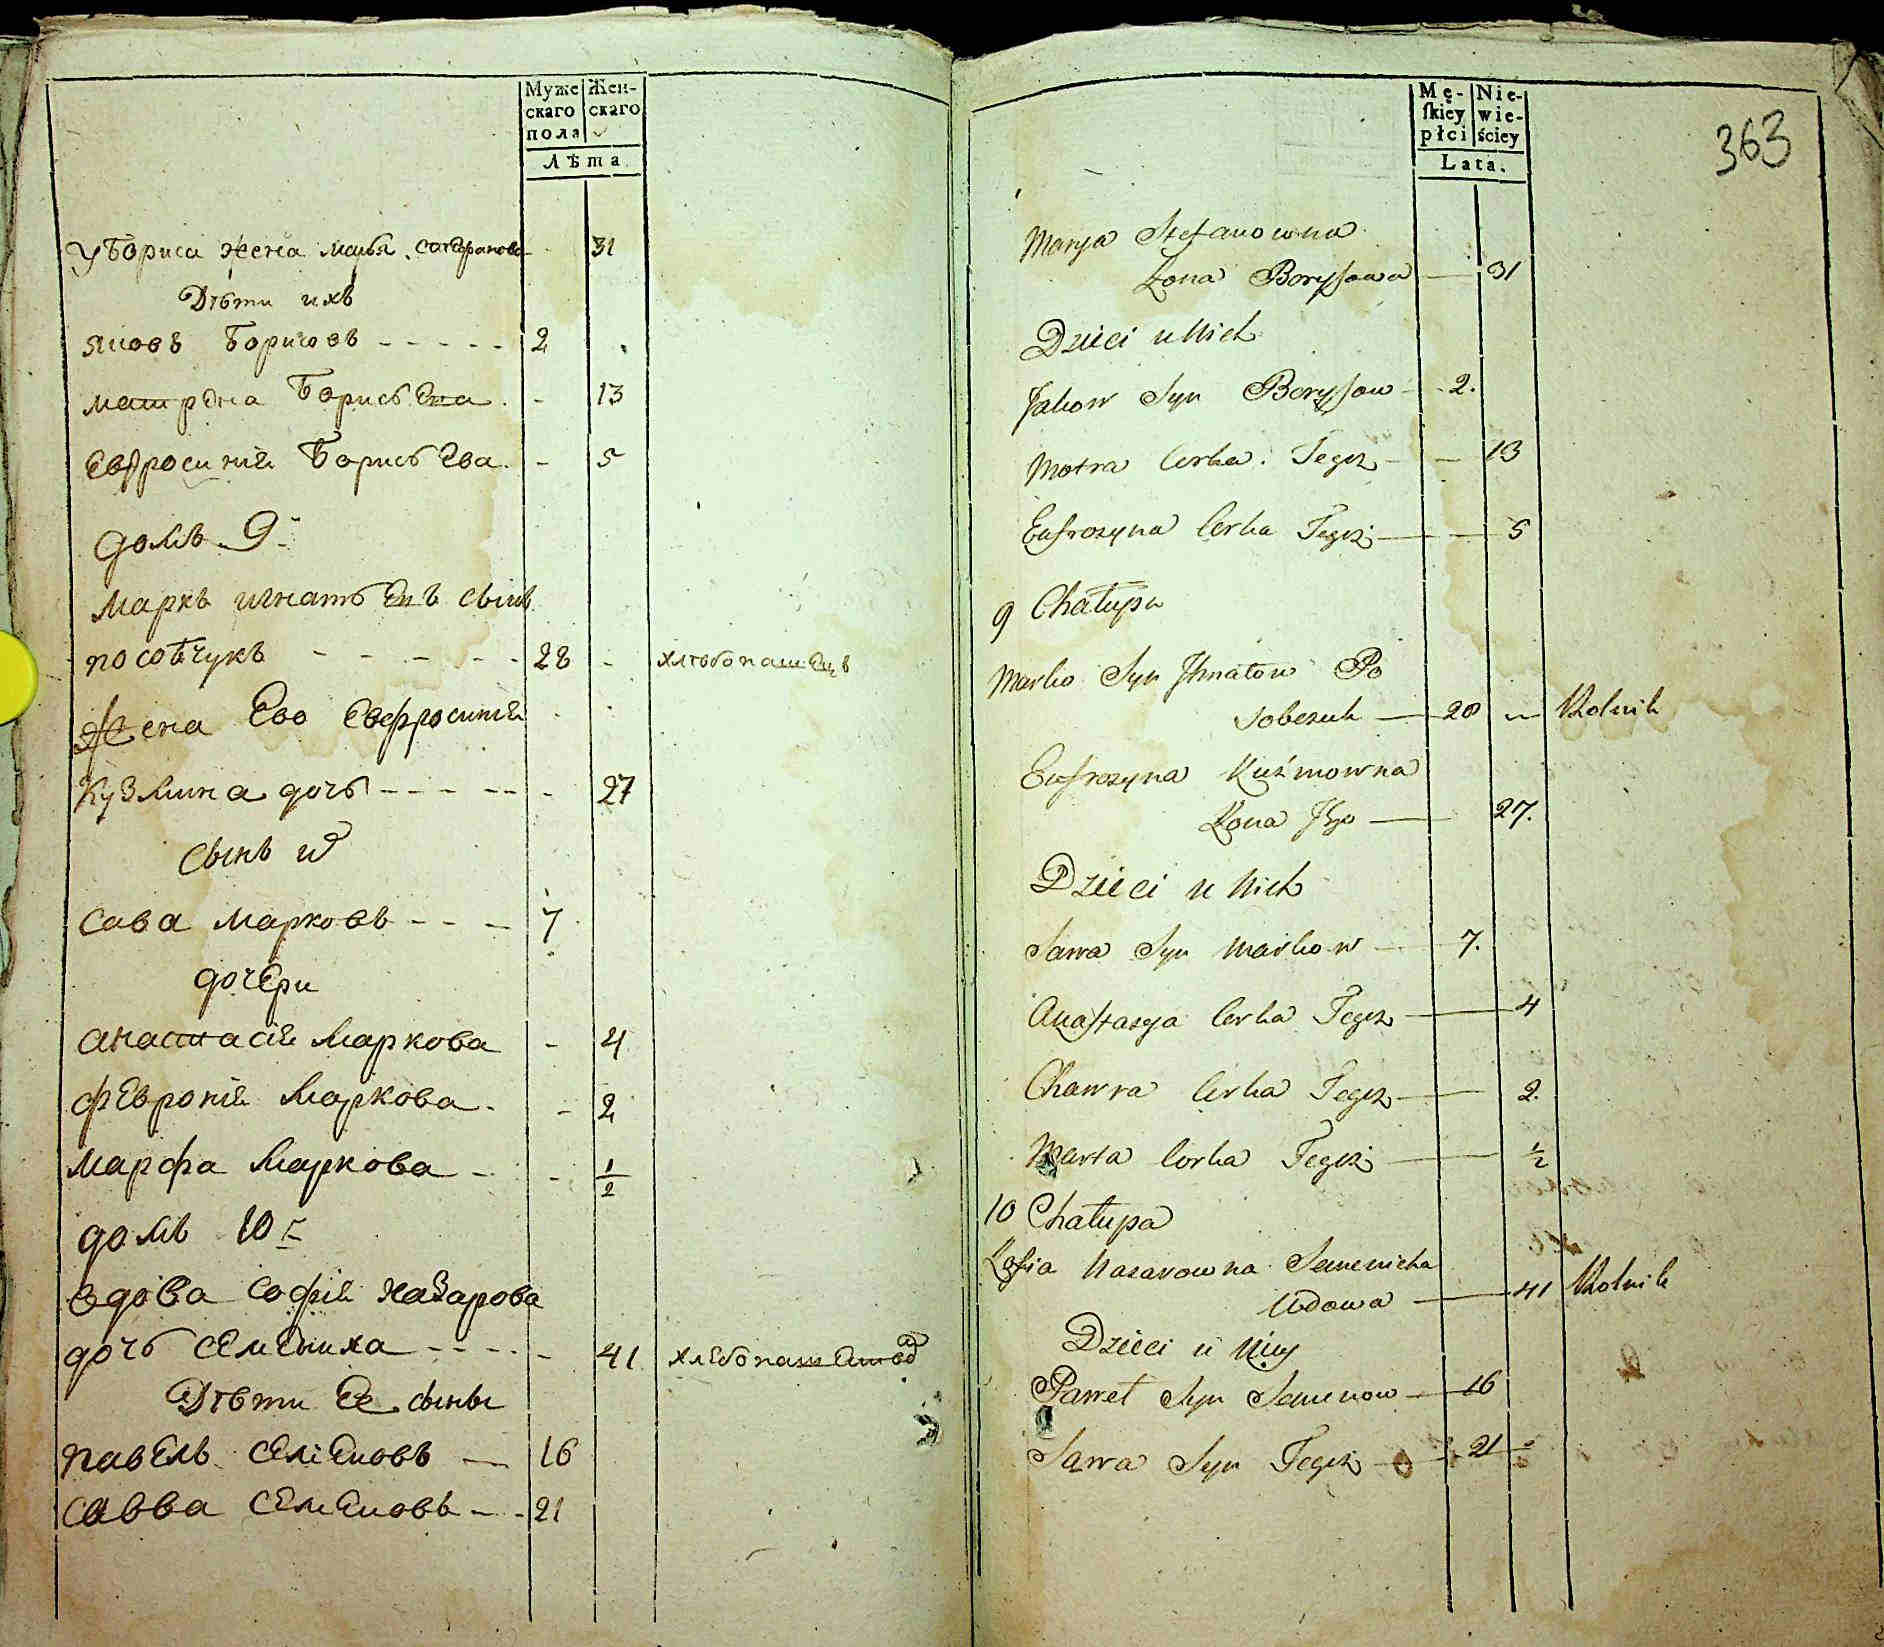 Муже
скаго
пола
Жен-
скаго
Лѣта
У Бориса жена Марья Стефанова - 31
Дѣти ихъ
Яковъ Борисовъ - - - - - 2
Матрена Борисьева - 13
Евфросинія Борисьева - 5
домъ 9й
Маркъ Игнатьевъ сынъ
Пособчукъ - - - - - 28 - хлѣбопашецъ
Жена Ево Евфросинія
Кузмина дочь - - - - - - 27
Сынъ и
Сава Марковъ - - - 7
дочери
Анастасія Маркова - 4
Февронія Маркова - 2
Марфа Маркова - - 1/2
домъ 10й
Вдова Софія Назарова
дочь Семениха - - - - - 41 хлебопашество
Дѣти Ее сыны
Павелъ Семеновъ — 16
Савва Семеновъ - - 21
Mę-
skiey
płci
Nie-
wie-
ściey
Lata.
363
Marya Stefanowna
Zona Borysowa — 31
Dzieci u Nich
Jakow Syn Borysow - 2.
Motra Corka Tegoz - - 13
Eufrozyna Corka Tegoż — - 5
9 Chałupa
Marko Syn Ihnatow Po
sobczuk — 28 Rolnik
Eufrozyna Kuźmowna
Zona Jego — 27.
Dzieci u Nich
Sawa Syn Markow — 7.
Anastazya Corka Tegoz — 4
Chawra Corka Tegoz — 2.
Marta Corka Tegoż — 1/2
10 Chałupa
Zofia Nazarowna Semenicha
Wdowa — 41 Rolnik
Dzieci u Niey
Paweł Syn Semenow — 16
Sawa Syn Tegoż — 21